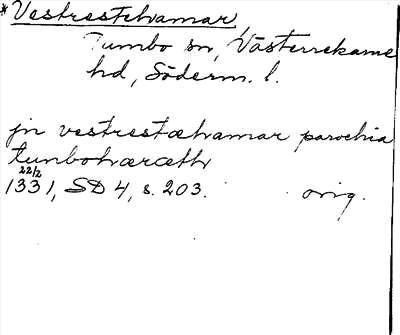 *Vestrestehamar,
Tumbo sn, Västerrekarne
hd, Söderm. l.
jn vestrestæhamar parochia
tunbohæræth
22/2
1331, SD 4, s. 203. orig.